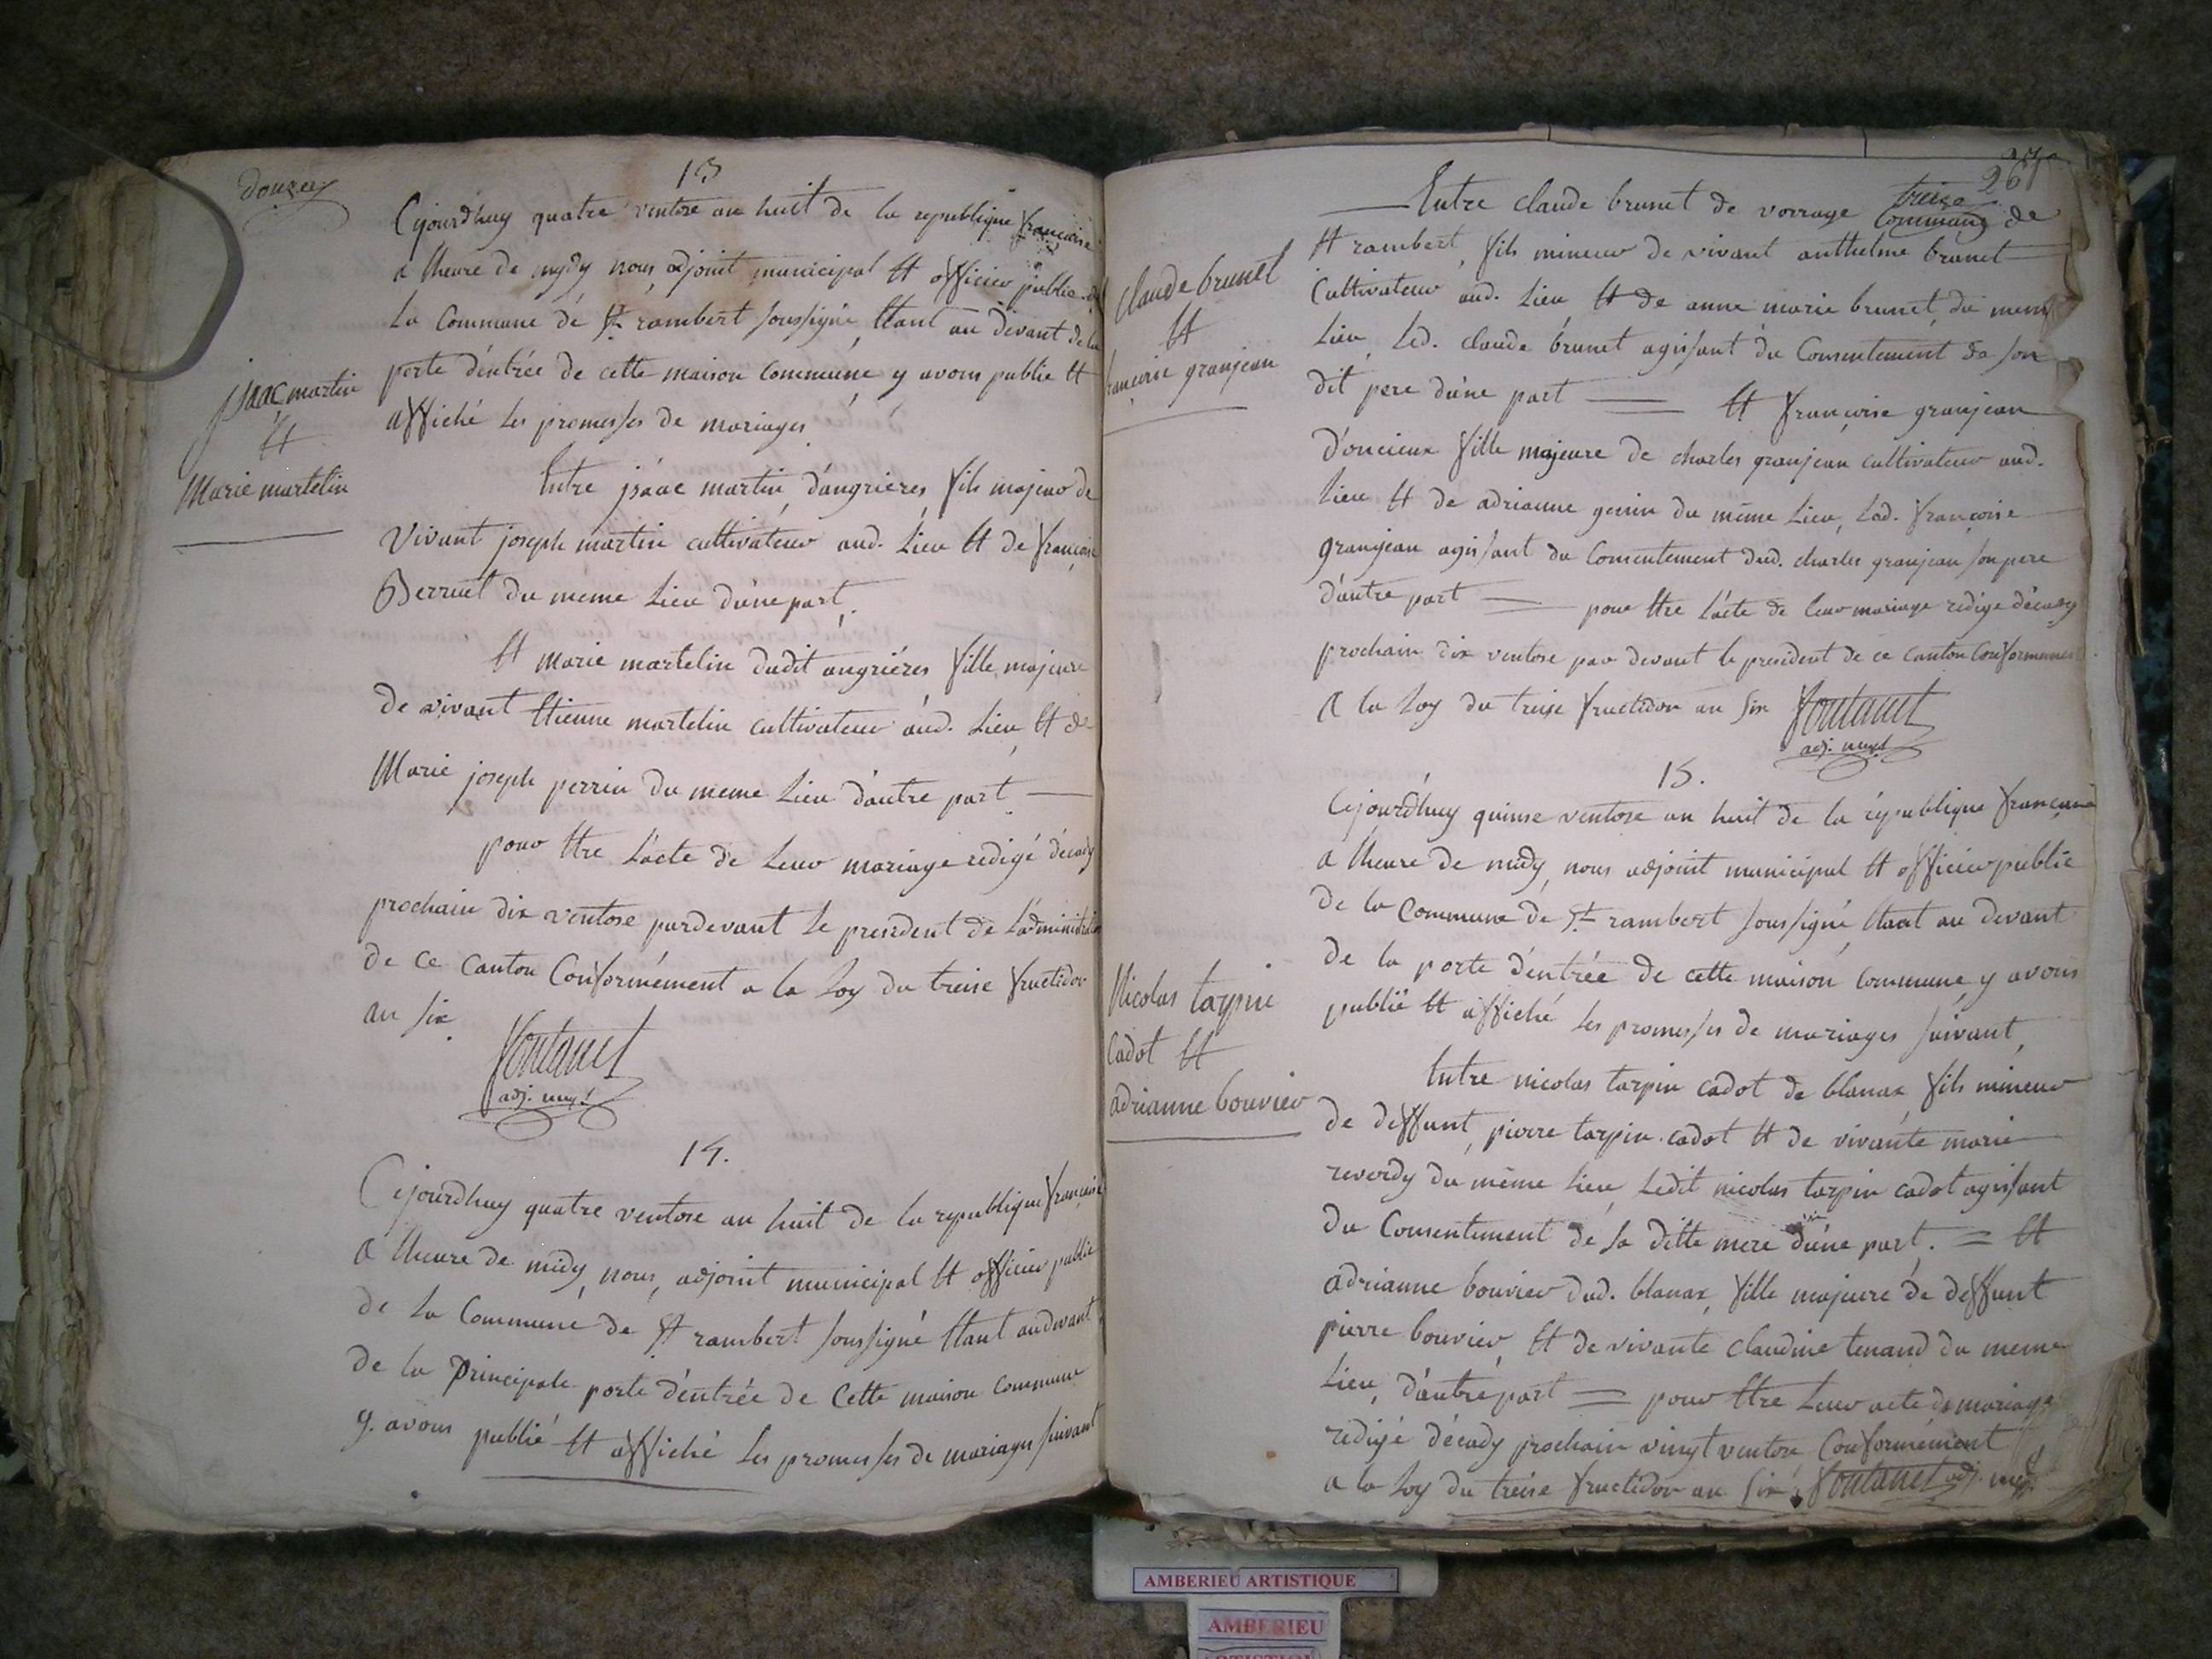 douze
13
Cejourdhuy quatre ventose an huit de la republique francoise
a lheure de mydy nous adjoint municipal Et officier public de
La Commune de St rambert soussigné, Etant au devant de la
porte d'entrée de cette maison commune y avons publie Et
affiché les promesses de mariages
isaac martin
Et
Marie martelin
Entre isaac martin d'angrieres, fils majeur de
Vivant joseph martin cultivateur aud. Lieu Et de françoise
Berruet du meme Lieu d'une part,
Et marie martelin dudit angriéres fille majeure
de vivant Etienne martelin cultivateur aud. Lieu, Et de
Marie joseph perrin du meme Lieu d'autre part
pour Etre L'acte de Leur mariage redigé décady
prochain dix ventose pardevant Le president de L'administration
de ce canton Conformément a la Loy du treise fructidor
an six
fontanel
adj. mupl
14.
Cejourdhuy quatre ventose an huit de la republique françoise
a lheure de midy, nous, adjoint municipal Et officier public
de La Commune de St rambert soussigné Etant au devant
de la principale porte d'entrée de Cette maison commune
y. avons publié Et affiché Les promesses de mariages suivant
267
treize
Entre claude brunet de vorrage Commune de
St rambert, fils mineur de vivant anthelme brunet
Cultivateur aud. Lieu, Et de anne marie brunet, du meme
Lieu, Led. claude brunet agissant du Consentement de son
dit pere d'une part Et françoise granjean
d'oncieux fille majeure de charles granjean cultivateur aud.
Lieu Et de adrianne genin du même Lieu, Lad. françoise
granjean agissant du Consentement dud. charles granjean son pere
d'autre part pour Etre L'acte de leur mariage redigé décady
prochain dix ventose par devant le president de ce canton Conformement
a la Loy du treise fructidor an six fontanel
adj. mupl
claude brunet
Et
françoise granjean
15.
Cejourd'huy quinse ventose an huit de la république françoise
a lheure de midy, nous adjoint municipal Et officier public
de la Commune de St rambert soussigné, Etant au devant
de la porte d'entrée de cette maison commune, y avons
publié Et affiché Les promesses de mariages suivant,
Nicolas tarpin
Cadot Et
adrianne bouvier
Entre nicolas tarpin cadot de blanax, fils mineur
de deffunt, pierre tarpin. cadot Et de vivante marie
reverdy du même Lieu, Ledit nicolas tarpin cadot agissant
du Consentement de sa ditte mere d'une part. = Et
adrianne bouvier dud. blanax, fille majeure de deffunt
pierre bouvier, Et de vivante claudine tenand du meme
Lieu, d'autre part = pour Etre Leur acte de mariage
redigé décady prochain vingt ventose Conformément
a la Loy du treise fructidor an six fontanel adj. mupl
AMBERIEU ARTISTIQUE
AMBERIEU
ARTISTIQUE